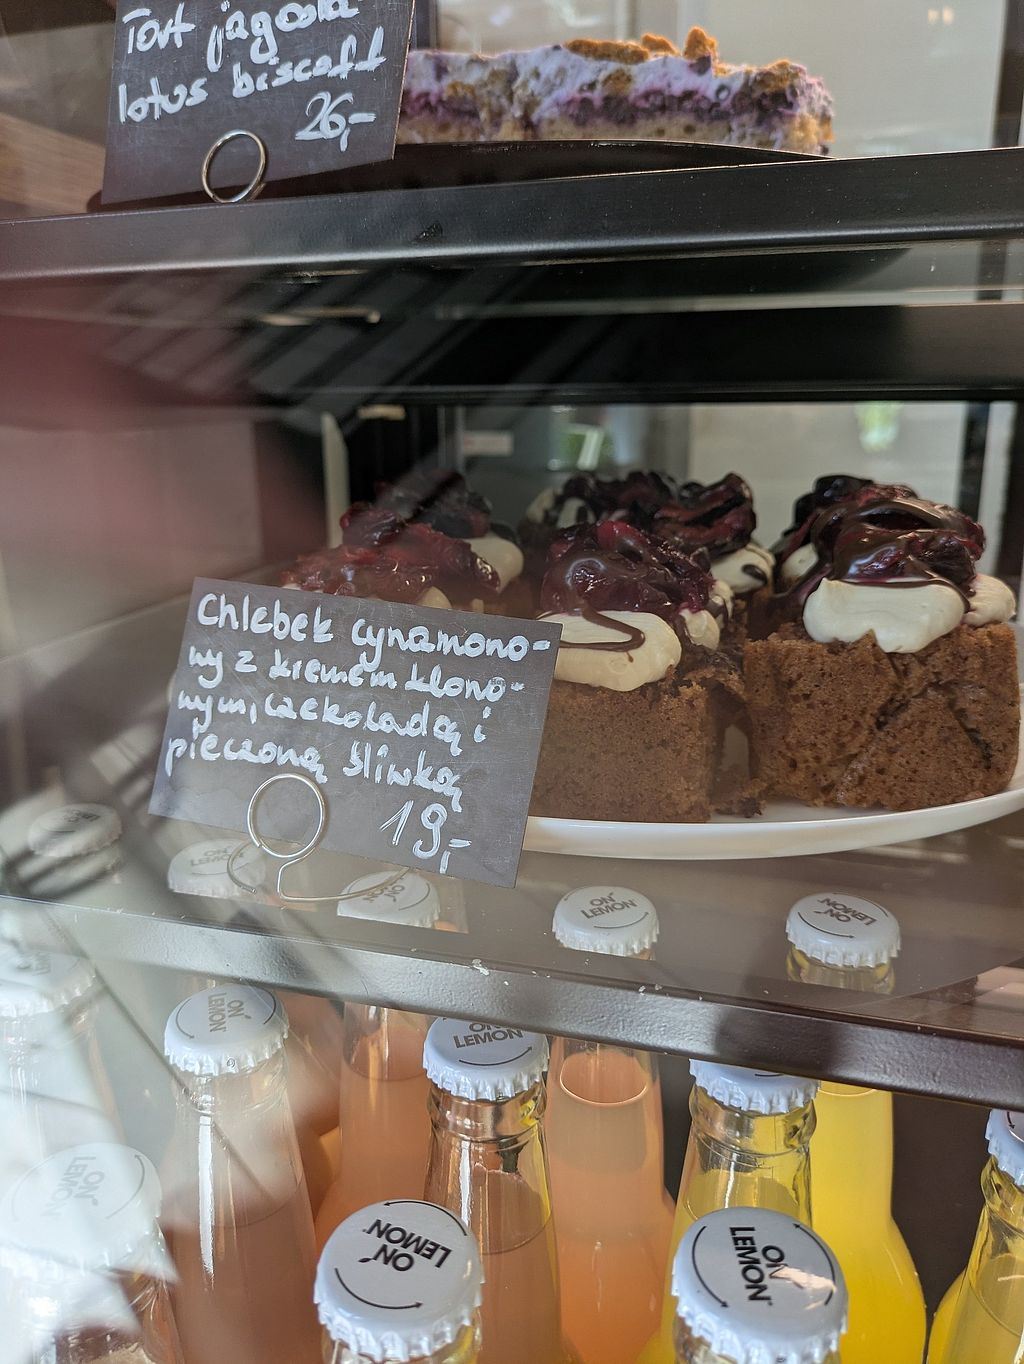 Tort jagoda
lotus biscoff
26,-
Chlebek cynamono-
wy z kremem klono-
wym, czekoladą i
pieczoną śliwką
19,-
ON
LEMON
ON
LEMON
ON
LEMON
ON
LEMON
ON
LEMON
ON
LEMON
ON
LEMON
ON
LEMON